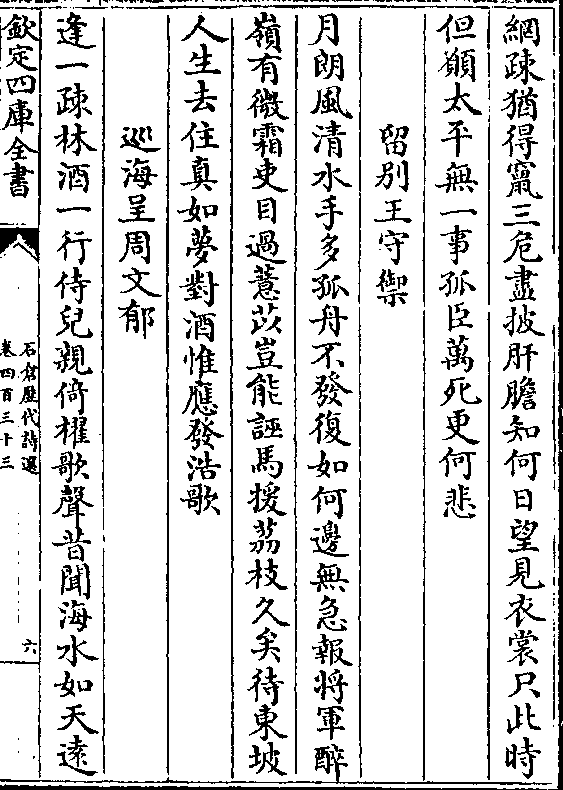 網疎猶得竄三危盡披肝膽知何日望見衣裳只此時
但願太平無一事孤臣萬死更何悲
留別王守禦
月朗風清水手多孤舟不發復如何邊無急報將軍醉
嶺有微霜吏目過薏苡豈能誣馬援荔枝久矣待東坡
人生去住真如夢對酒惟應發浩歌
巡海呈周文郁
逢一疎林酒一行侍兒親倚櫂歌聲昔聞海水如天遠
欽定四庫全書
石倉歷代詩選
卷四百三十三
六